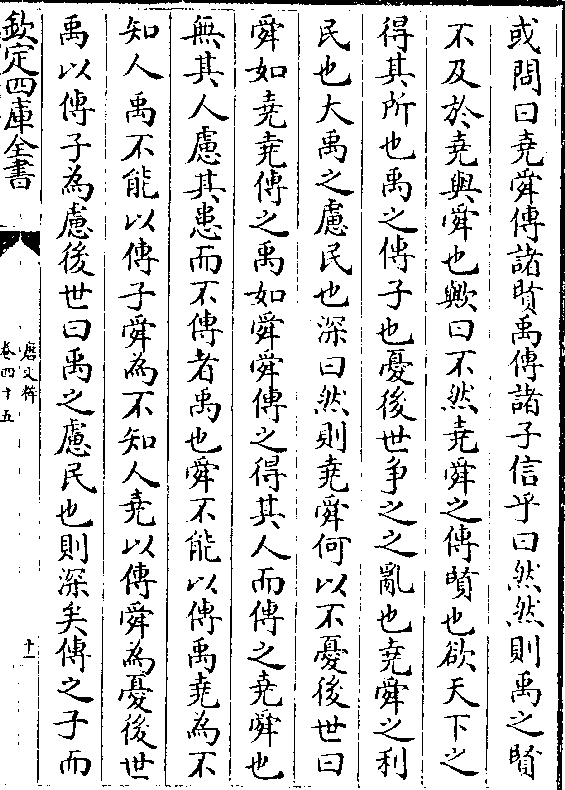 或問曰堯舜傳諸賢禹傳諸子信乎曰然然則禹之賢
不及於堯與舜也歟曰不然堯舜之傳賢也欲天下之
得其所也禹之傳子也憂後世爭之之亂也堯舜之利
民也大禹之慮民也深曰然則堯舜何以不憂後世曰
舜如堯堯傳之禹如舜舜傳之得其人而傳之堯舜也
無其人慮其患而不傳者禹也舜不能以傳禹堯為不
知人禹不能以傳子舜為不知人堯以傳舜為憂後世
禹以傳子為慮後世曰禹之慮民也則深矣傳之子而
欽定四庫全書
唐文粹
卷四十五
十一